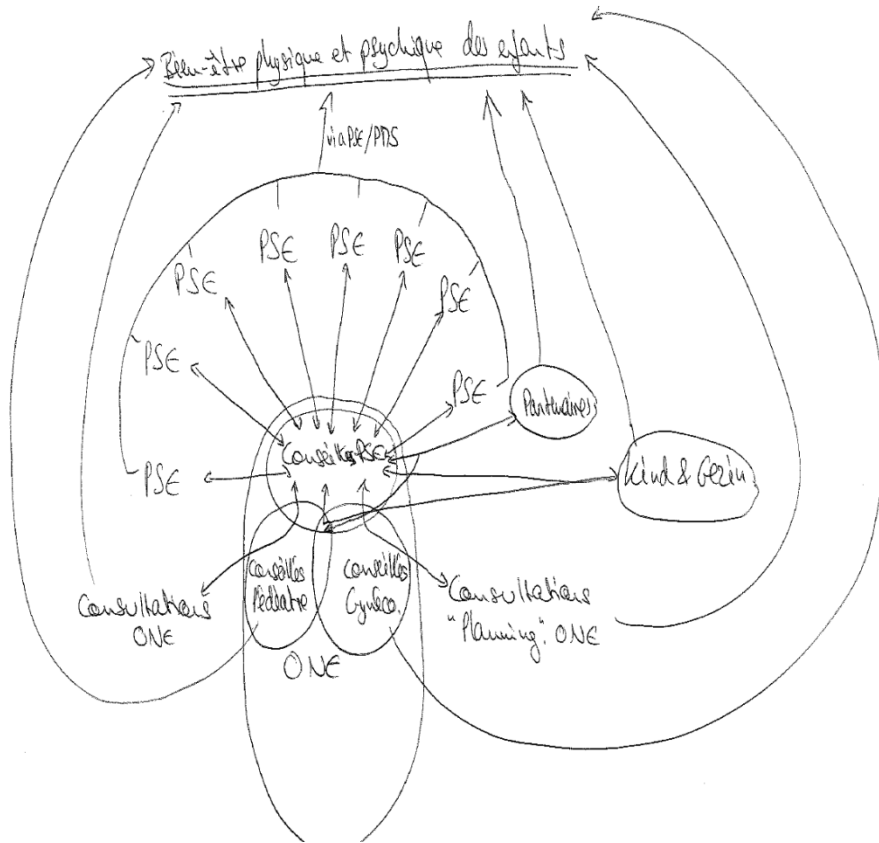 Bien-être physique et psychique des enfants
via PSE/PDS
PSE
PSE
PSE
PSE
PSE
PSE
PSE
PSE
Partenaires
Conseillers PSE
Kind & Gezin
PSE
Conseillers
Pédiatre
Conseillers
Gynéco.
Consultations
ONE
Consultations
"Planning". ONE
ONE